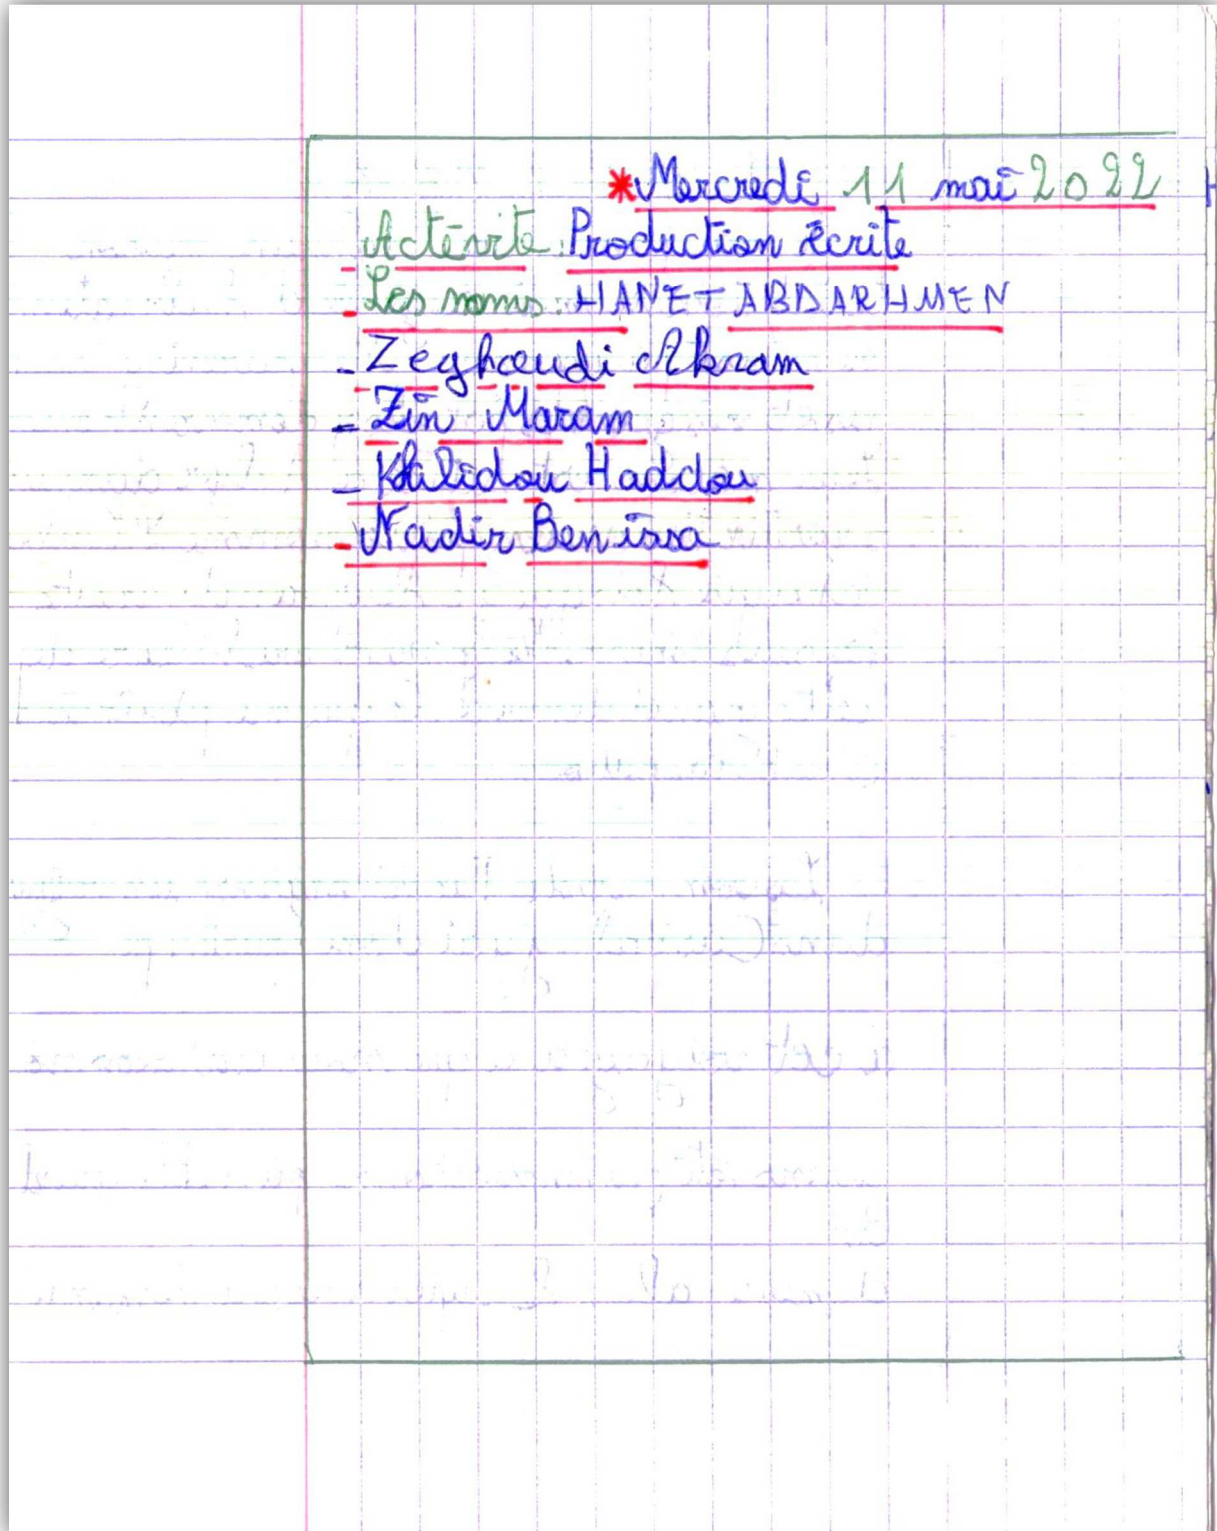 *Mercredi 11 mai 2022
- Activité : Production écrite
- Les noms : HANET ABDARHMEN
- Zeghoudi Akram
- Zin Maram
- Khalidou Haddou
- Nadir Benissa